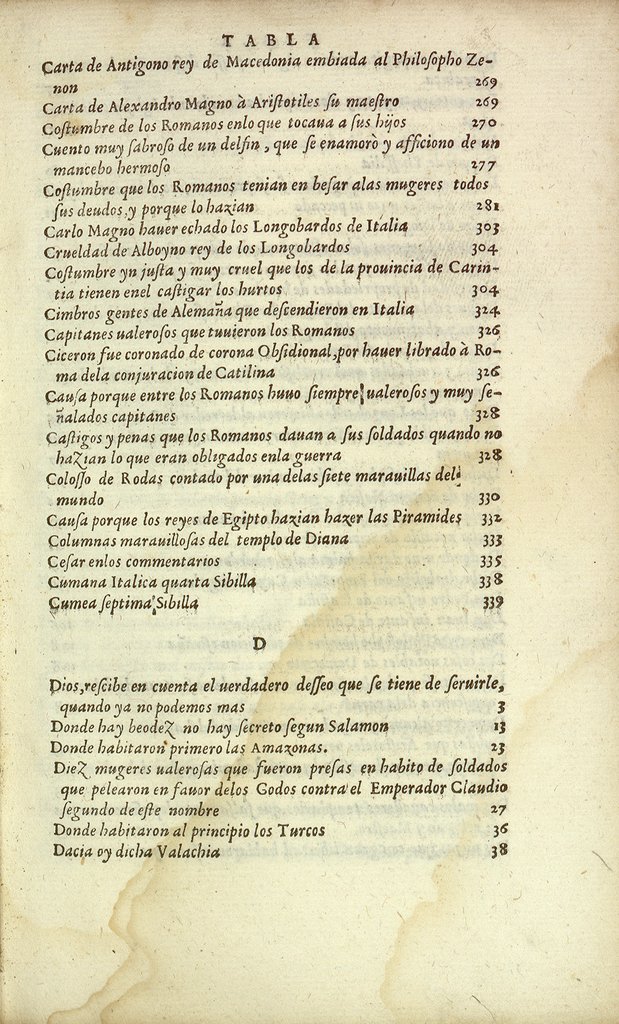 TABLA
Carta de Antigono rey de Macedonia embiada al Philosopho Ze-
non 269
Carta de Alexandro Magno à Aristotiles su maestro 269
Costumbre de los Romanos enlo que tocaua a sus hijos 270
Cuento muy sabroso de un delfin, que se enamorò y afficiono de un
mancebo hermoso 277
Costumbre que los Romanos tenian en besar alas mugeres todos
sus deudos, y porque lo hazian 281
Carlo Magno hauer echado los Longobardos de Italia 303
Crueldad de Alboyno rey de los Longobardos 304
Costumbre yn justa y muy cruel que los de la prouincia de Carin-
tia tienen enel castigar los hurtos 304
Cimbros gentes de Alemaña que descendieron en Italia 324
Capitanes ualerosos que tuuieron los Romanos 326
Ciceron fue coronado de corona Obsidional, por hauer librado à Ro-
ma dela conjuracion de Catilina 326
Causa porque entre los Romanos huuo siempre ualerosos y muy se-
ñalados capitanes 328
Castigos y penas que los Romanos dauan a sus soldados quando no
hazian lo que eran obligados enla guerra 328
Colosso de Rodas contado por una delas siete marauillas del
mundo 330
Causa porque los reyes de Egipto hazian hazer las Piramides 332
Columnas marauillosas del templo de Diana 333
Cesar enlos commentarios 335
Cumana Italica quarta Sibilla 338
Cumea septima Sibilla 339
D
Dios, rescibe en cuenta el uerdadero desseo que se tiene de seruirle,
quando ya no podemos mas 3
Donde hay beodez no hay secreto segun Salamon 13
Donde habitaron primero las Amazonas. 23
Diez mugeres ualerosas que fueron presas en habito de soldados
que pelearon en fauor delos Godos contra el Emperador Claudio
segundo de este nombre 27
Donde habitaron al principio los Turcos 36
Dacia oy dicha Valachia 38